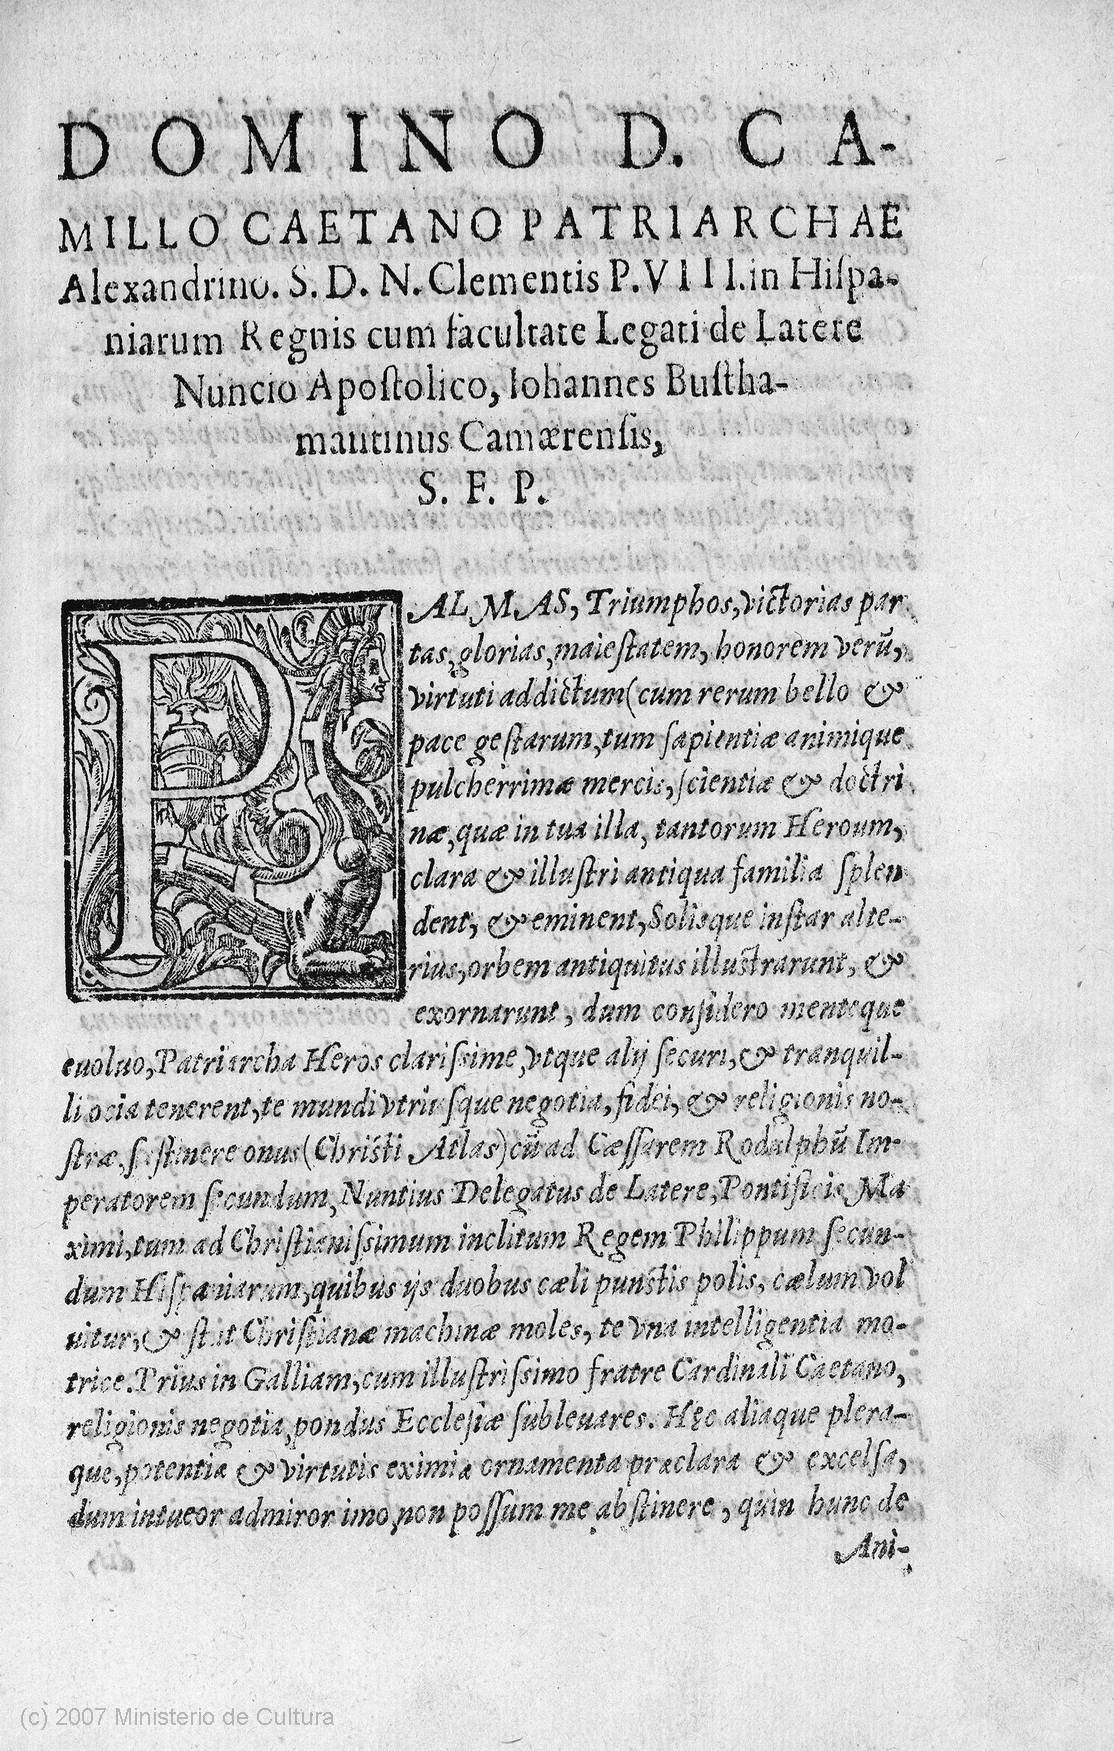 DOMINO D. CA-
MILLO CAETANO PATRIARCHAE
Alexandrino. S. D. N. Clementis P. VIII. in Hiſpa-
niarum Regnis cum facultate Legati de Latere
Nuncio Apoſtolico, Iohannes Buſtha-
mantinus Camærenſis,
S. F. P.
PALMAS, Triumphos, victorias par
tas, glorias, maieſtatem, honorem verũ,
virtuti addictum (cum rerum bello &
pace geſtarum, tum ſapientiæ animique
pulcherrimæ mercis, ſcientiæ & doctri
næ, quæ in tua illa, tantorum Heroum,
clara & illuſtri antiqua familia ſplen
dent, & eminent, Solisque inſtar alte-
rius, orbem antiquitus illuſtrarunt, &
exornarunt, dum conſidero menteque
euoluo, Patriarcha Heros clariſsime, vtque alij ſecuri, & tranquil-
li ocia tenerent, te mundi vtriuſque negotia, fidei, & religionis no-
ſtræ, ſuſtinere onus (Chriſti Atlas) cũ ad Cæſſarem Rodalphũ Im-
peratorem ſecundum, Nuntius Delegatus de Latere, Pontificis Ma
ximi, tum ad Chriſtianiſsimum inclitum Regem Philippum ſecun-
dum Hiſpaniarum, quibus ijs duobus cæli punctis polis, cælum vol
uitur, & ſtat Chriſtianæ machinæ moles, te vna intelligentia mo-
trice. Prius in Galliam, cum illuſtriſsimo fratre Cardinali Caetano,
religionis negotia, pondus Eccleſiæ ſubleuares. Hęc aliaque plera-
que, potentia & virtutis eximia ornamenta præclara & excelſa,
dum intueor admiror imo, non poſſum me abſtinere, quin hunc de
Ani-
(c) 2007 Ministerio de Cultura